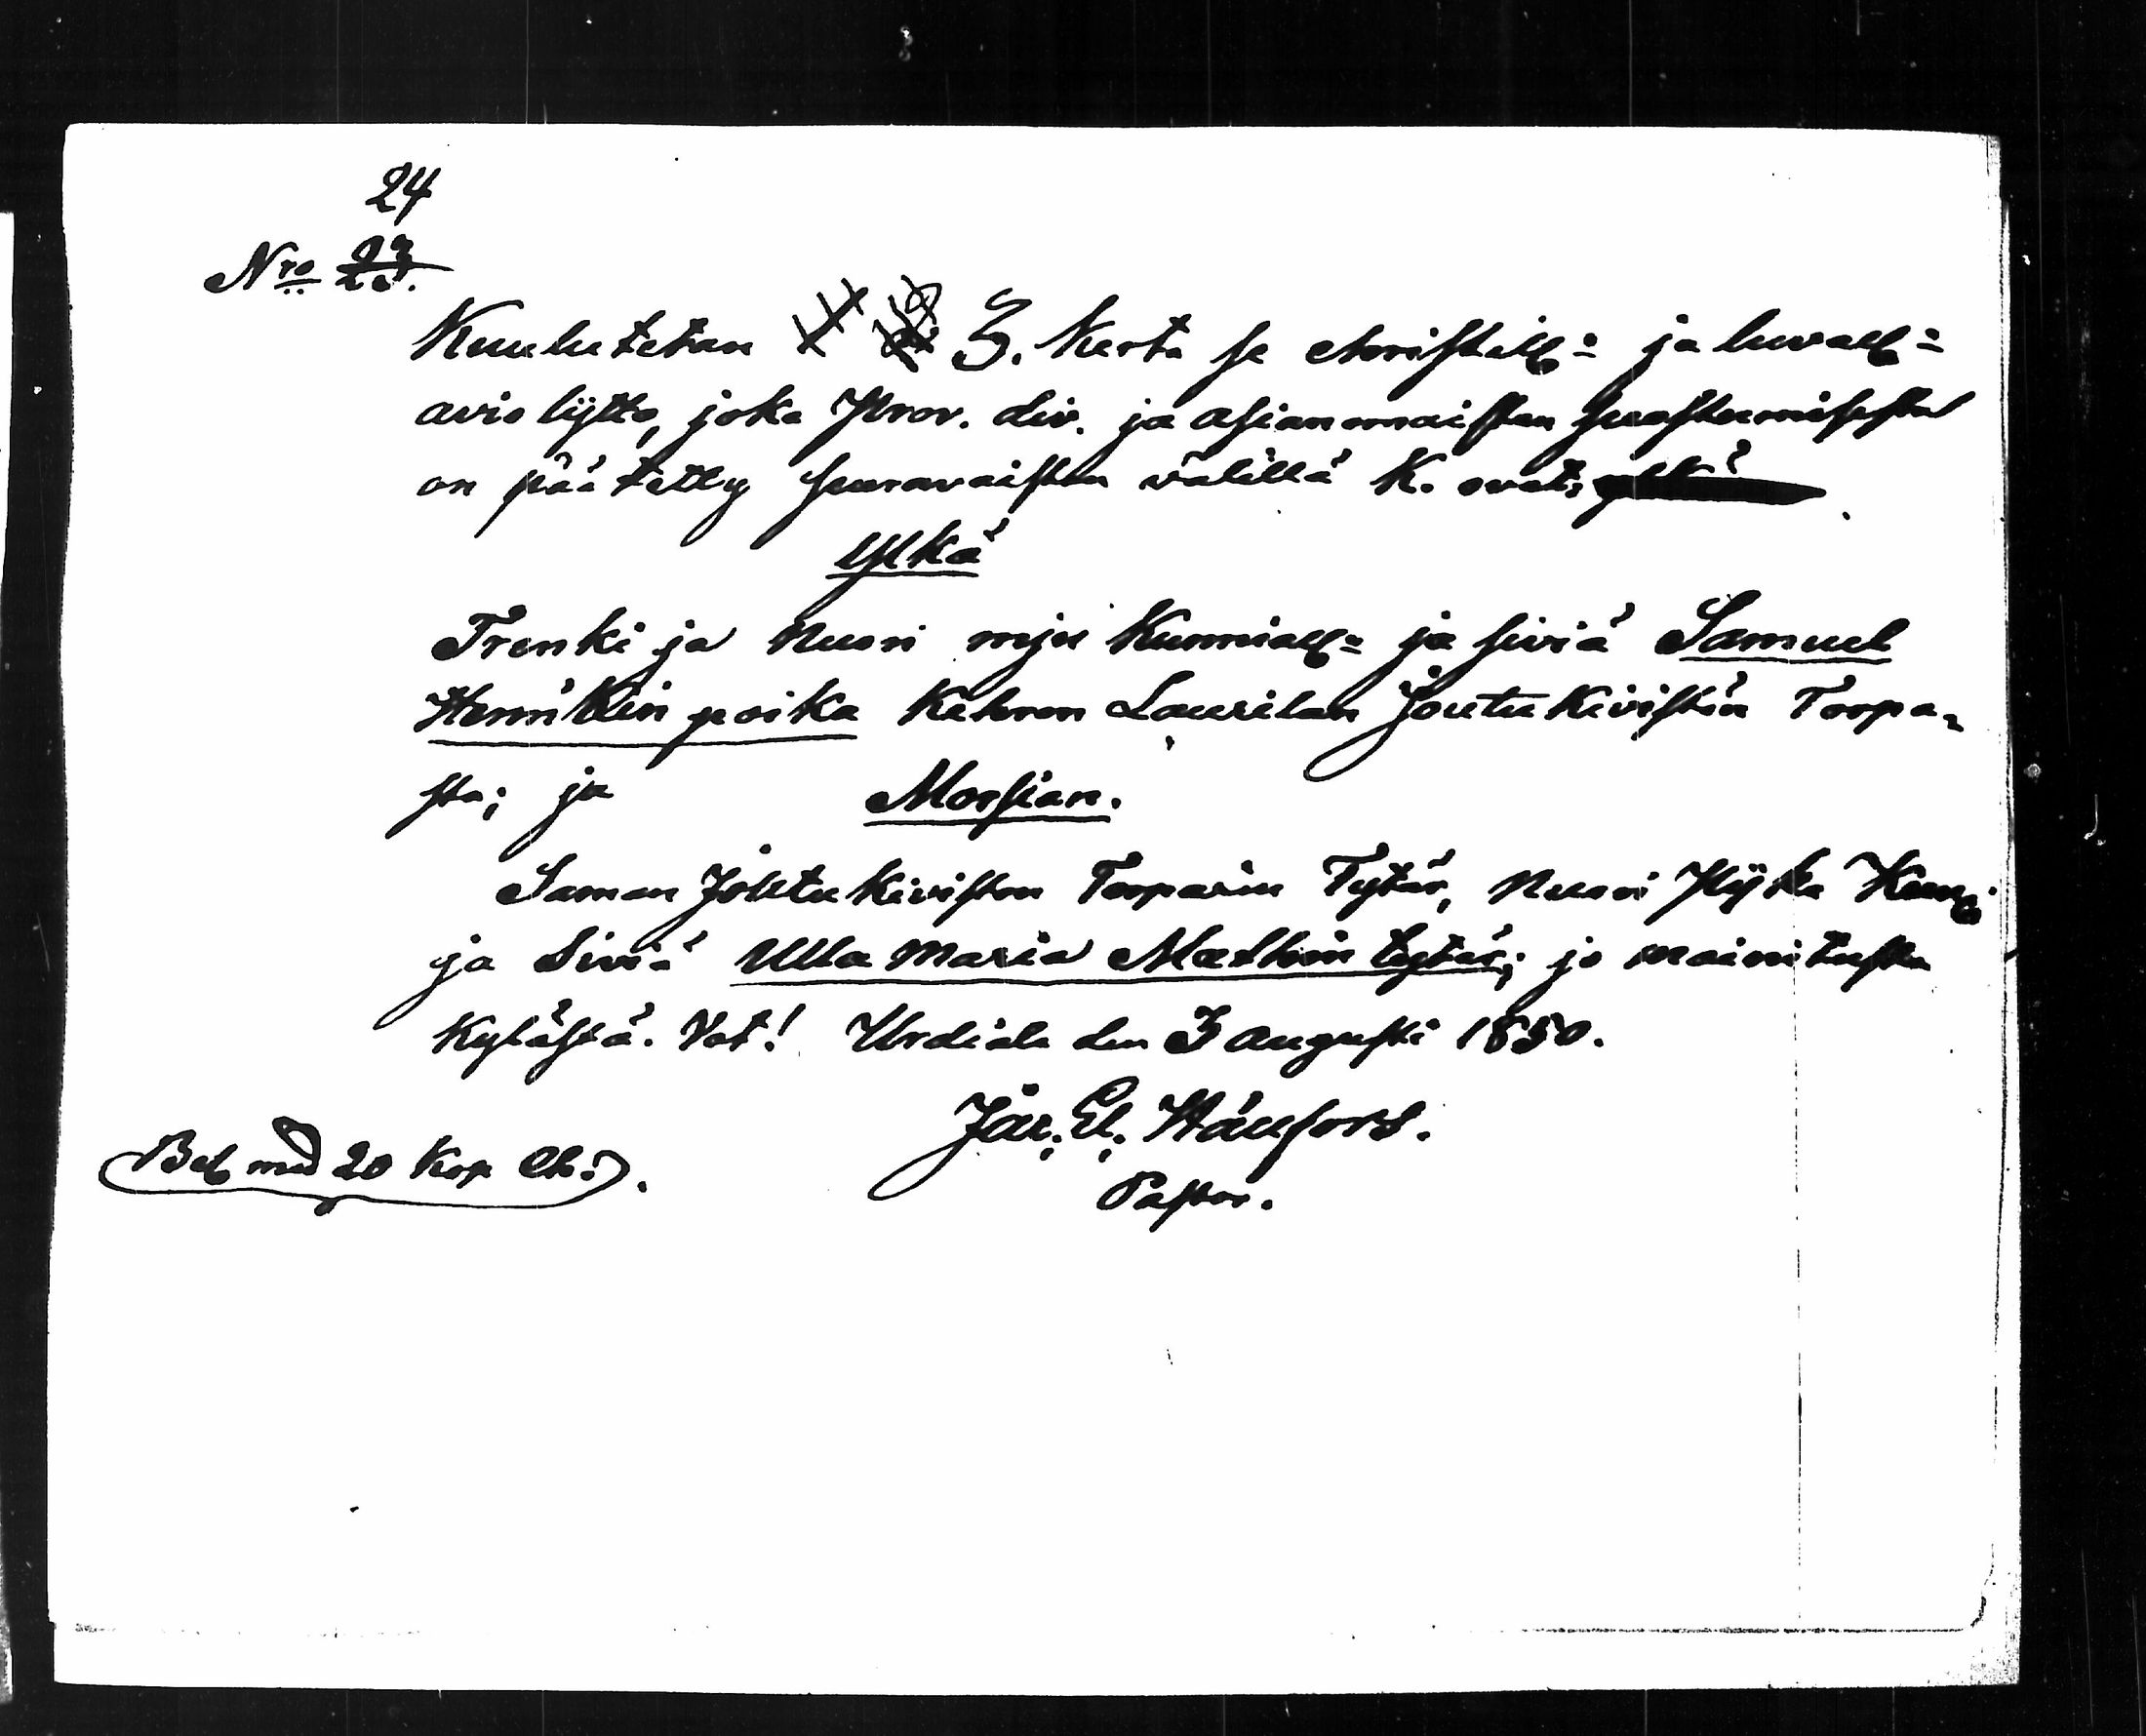 24
Nro 23.
Kuulutetan 3. Kerta se christill: ja luvall:
avioliitto, joka Prov. div. ja asianomaisten suostumisesta
on päätetty seuravaisten välillä K. ovat,
Ylkä
Trenki ja Nuori mjes Kunniall: ja siviä Samuel
Henrikin poika Kehron Laurilan Joutukivistön Torpa-
sta; ja Morsian.
Saman Joutukiviston Torparin Tytär, Nuori Pijka Kun:
ja Siviä Ulla Maria Mathintytär; jo mainitusta
Kylästä. Vot! Urdiala den 3 Augusti 1850.
Joh. El. Hänfors.
Pastor.
Bet med 20 Kop